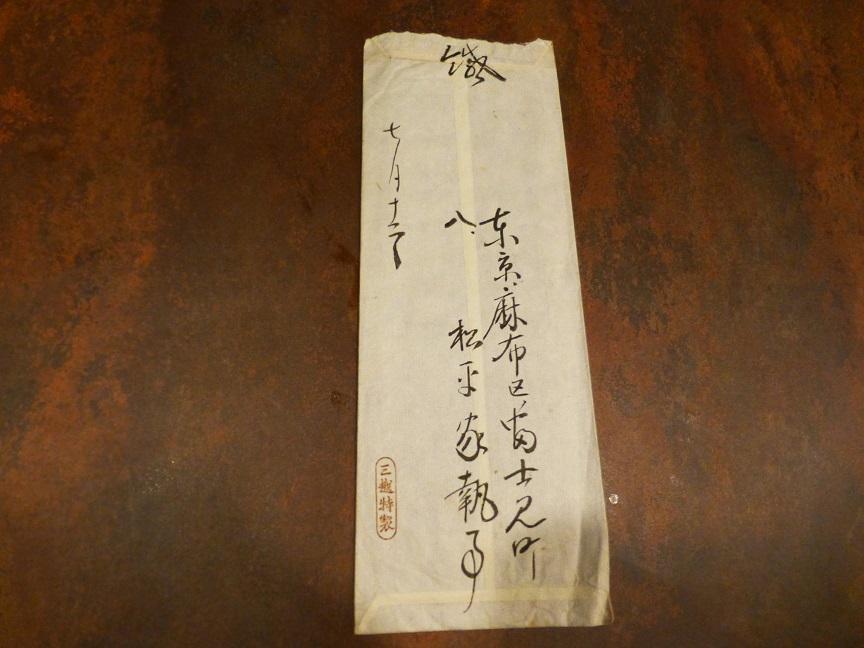 東京麻布区富士見町
八、 松平家執事
七月十
三越特製